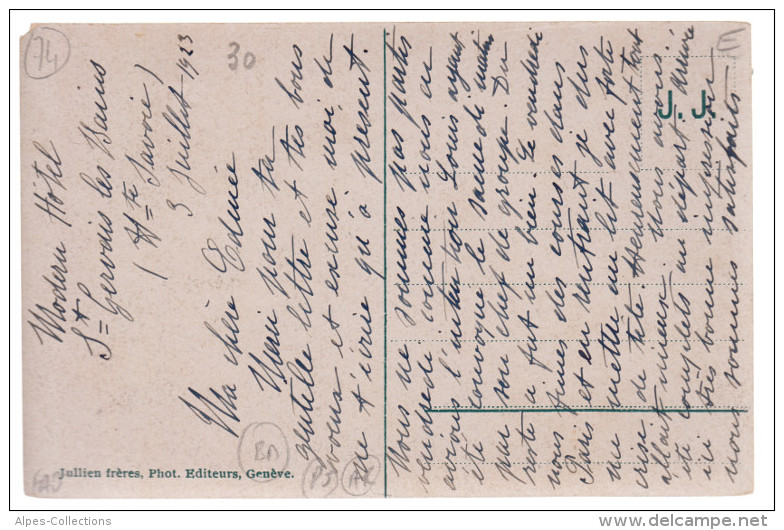 Modern Hôtel
St Gervais les Bains
(Hte Savoie)
3 Juillet 1923
Ma chère Edmée
Merci pour ta
gentille lettre et tes bons
voeux et excuse moi de
ne t'écrire qu'à présent.
Nous ne sommes pas partis
vendredi comme nous en
avions l'intention Louis ayant
été convoqué le samedi matin
par son chef de groupe. Du
reste ce fut un bien. Le vendredi
nous fîmes des courses dans
Paris et en rentrant je dus
me mettre au lit avec forte
crise de tête. Heureusement tout
allait mieux. Nous avons
été complets au départ arrivée
ici très bonne impression
nous sommes satisfaits
74
30
J. J.
E
BD
Jullien frères, Phot. Editeurs, Genève.
Alpes-Collections
http://www.delcampe.net